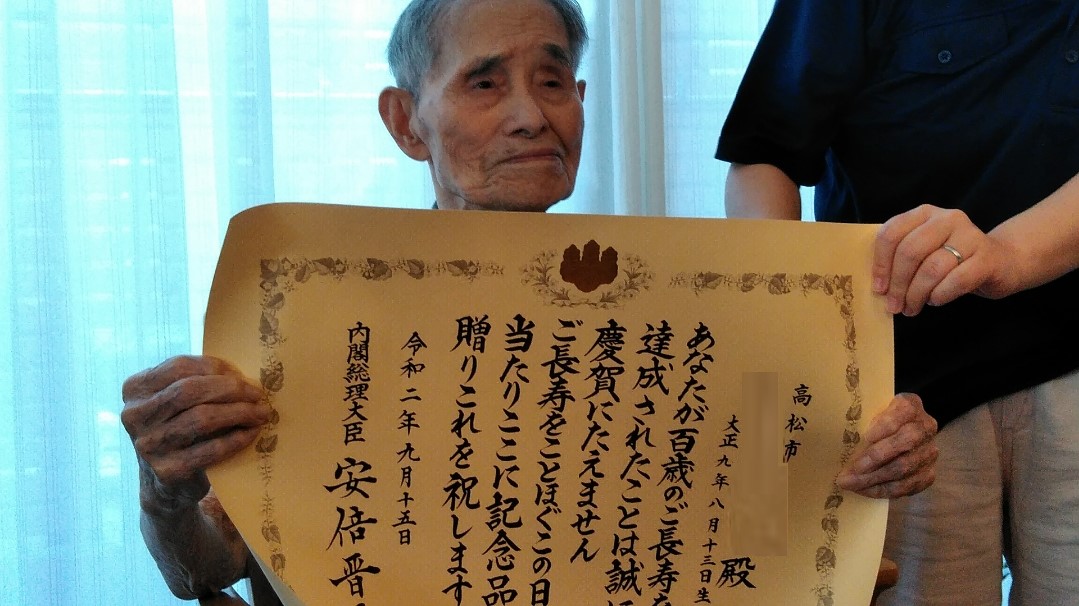 高松市
殿
大正九年八月十三日生
あなたが百歳のご長寿を
達成されたことは誠に
慶賀にたえません
ご長寿をことほぐこの日
当たりここに記念品
贈りこれを祝します
令和二年九月十五日
内閣総理大臣 安倍晋